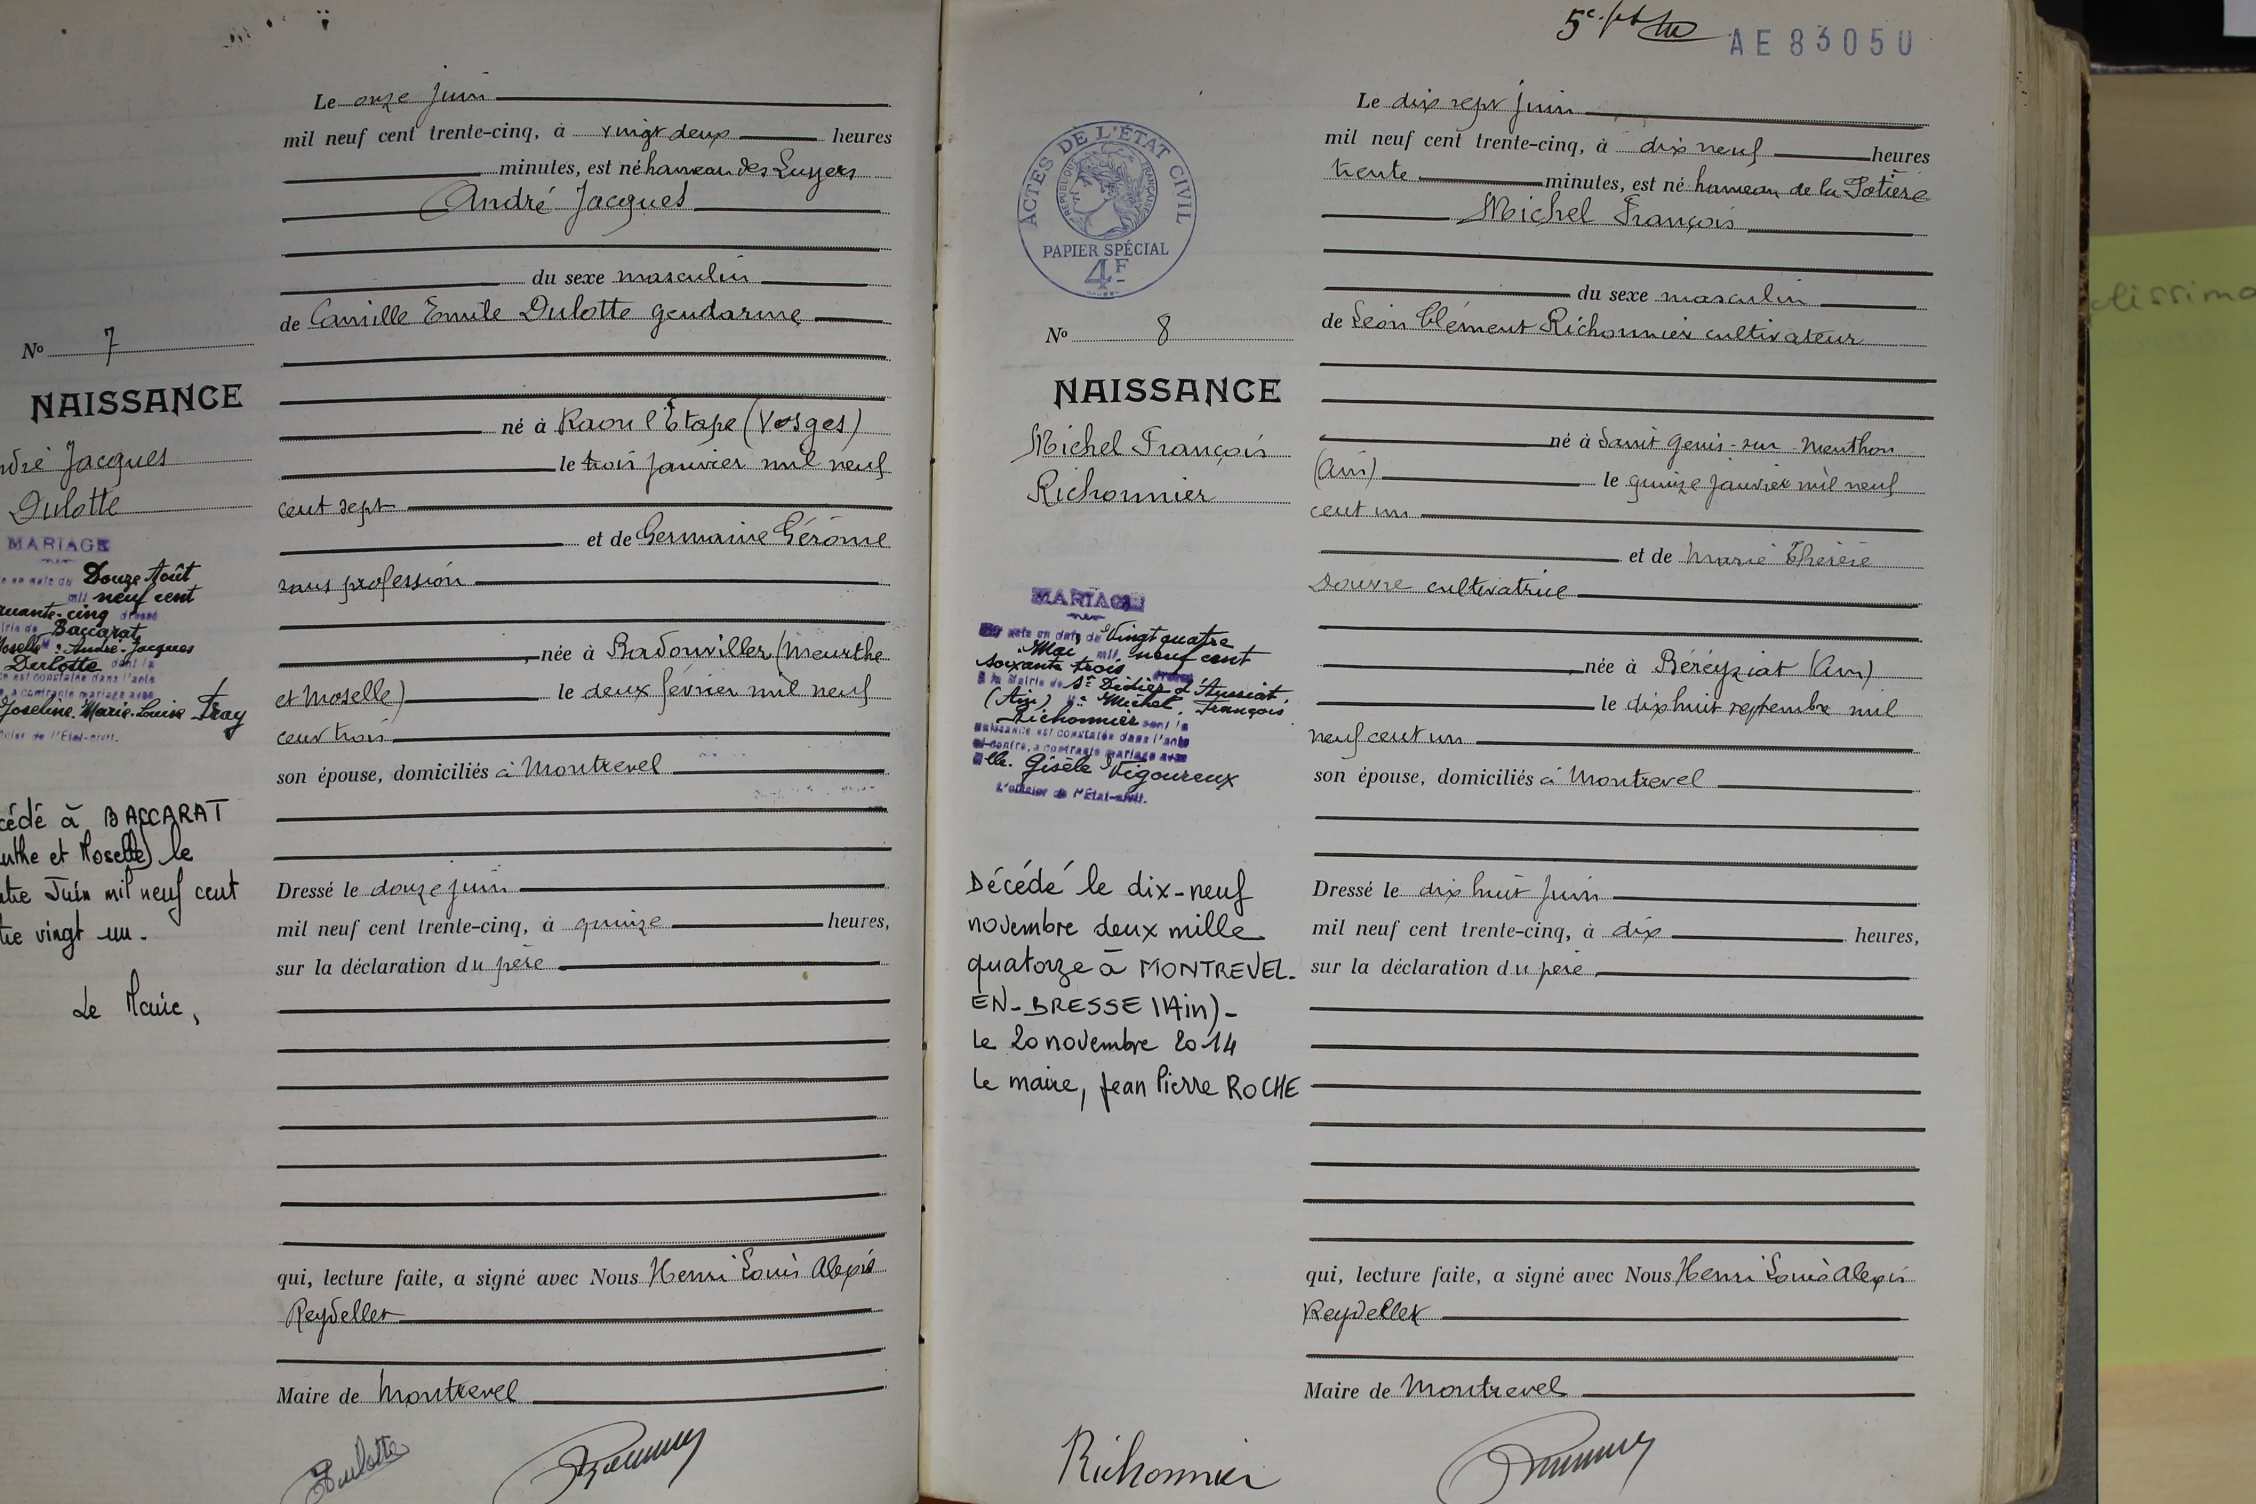 Le onze juin
mil neuf cent trente-cinq, à vingt deux heures
minutes, est né hameau des Luyers
André Jacques
du sexe masculin
de Camille Emile Dulotte gendarme
né à Raon l'Etape (Vosges)
le trois janvier mil neuf
cent sept
et de Germaine Gérôme
sans profession
née à Badonviller (Meurthe
et Moselle) le deux février mil neuf
cent trois
son épouse, domiciliés à Montrevel
Dressé le douze juin
mil neuf cent trente-cinq, à quinze heures,
sur la déclaration du père
qui, lecture faite, a signé avec Nous Henri Louis Alexis
Reydellet
Maire de Montrevel
Dulotte
No 7
NAISSANCE
dré Jacques
Dulotte
MARIAGE
Douze Août
mil neuf cent
quante-cinq dressé
Baccarat
Moselle M. André-Jacques
Dulotte dont la
est constatée dans l'acte
a contracté mariage avec
Joseline. Marie-Louise Fray
de l'Etat-civil.
cédé à BACCARAT
urthe et Moselle) le
Juin mil neuf cent
tre vingt un.
Le Maire,
5e
AE83050
ACTES DE L'ÉTAT CIVIL
RÉPUBLIQUE FRANÇAISE
PAPIER SPÉCIAL
4F
No 8
NAISSANCE
Michel François
Richonnier
MARIAGE
acte en date du Vingt quatre
Mai mil neuf cent
soixante trois dressé
à la Mairie de St Didier d'Aussiat
(Ain) M. Michel, François
Richonnier dont la
naissance est constatée dans l'acte
ci-contre, a contracté mariage avec
Mlle. Gisèle Vigoureux
L'officier de l'Etat-civil.
Décédé le dix-neuf
novembre deux mille
quatorze à MONTREVEL-
EN-BRESSE (Ain)-
Le 20 novembre 2014
Le maire, Jean Pierre ROCHE
Le dix sept juin
mil neuf cent trente-cinq, à dix neuf heures
trente minutes, est né hameau de la Potière
Michel François
du sexe masculin
de Léon Clément Richonnier cultivateur
né à Saint Genis-sur-Menthon
(Ain) le quinze janvier mil neuf
cent un
et de Marie Thérèse
Douvre cultivatrice
née à Béréyziat (Ain)
le dix huit septembre mil
neuf cent un
son épouse, domiciliés à Montrevel
Dressé le dix huit juin
mil neuf cent trente-cinq, à dix heures,
sur la déclaration du père
qui, lecture faite, a signé avec Nous Henri Louis Alexis
Reydellet
Maire de Montrevel
Richonnier